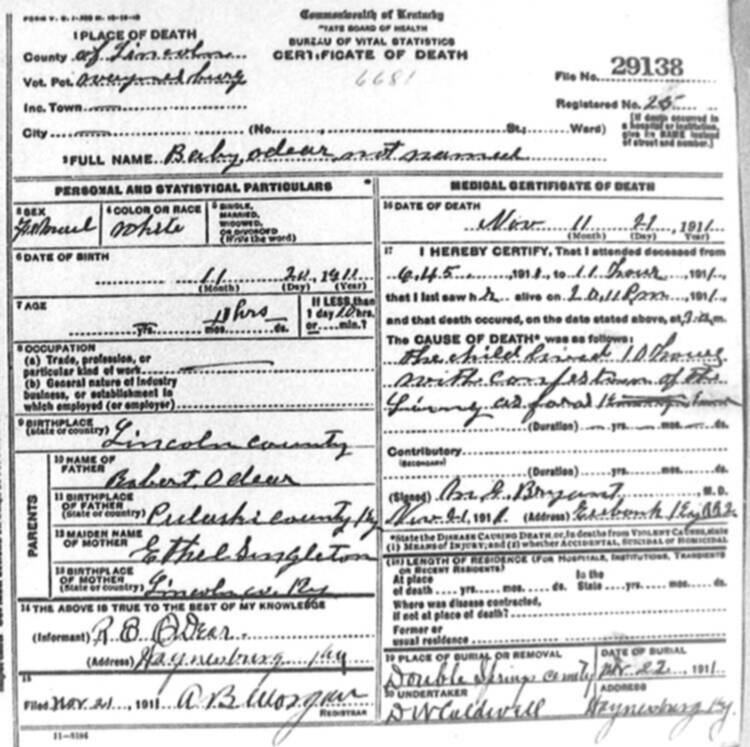 FORM V. S. 1-
Commonwealth of Kentucky
STATE BOARD OF HEALTH
BUREAU OF VITAL STATISTICS
CERTIFICATE OF DEATH
6681
1 PLACE OF DEATH
County of Lincoln
Vot. Pct.
Inc. Town
City (No. St.; Ward)
File No. 29138
Registered No. 25
[If death occurred in a hospital or institution, give its NAME instead of street and number.]
2 FULL NAME Baby odear not named
PERSONAL AND STATISTICAL PARTICULARS
3 SEX
4 COLOR OR RACE White
5 SINGLE, MARRIED, WIDOWED, OR DIVORCED (Write the word)
6 DATE OF BIRTH
11 20, 1911
(Month) (Day) (Year)
7 AGE
yrs. mos. ds.
If LESS than 1 day 10 hrs. or min.?
8 OCCUPATION
(a) Trade, profession, or particular kind of work
(b) General nature of industry business, or establishment in which employed (or employer)
9 BIRTHPLACE (State or country) Lincoln county
PARENTS
10 NAME OF FATHER Robert Odear
11 BIRTHPLACE OF FATHER (State or country) Pulaski county Ky
12 MAIDEN NAME OF MOTHER Ethel Singleton
13 BIRTHPLACE OF MOTHER (State or country) Lincoln co. Ky
14 THE ABOVE IS TRUE TO THE BEST OF MY KNOWLEDGE
(Informant) R B O'Dear
(Address) Waynesburg Ky
15
Filed Nov. 21, 1911 A B Morgan
REGISTRAR
11-3184
MEDICAL CERTIFICATE OF DEATH
16 DATE OF DEATH
Nov 11 21, 1911
(Month) (Day) (Year)
17 I HEREBY CERTIFY, That I attended deceased from
6.45, 1911, to 11 hour, 1911,
that I last saw h alive on 20, 11 Pm, 1911,
and that death occured, on the date stated above, at m.
The CAUSE OF DEATH* was as follows:
The child lived 10 hours
with congestion of the
(Duration) yrs. mos. ds.
Contributory
(SECONDARY)
(Duration) yrs. mos. ds.
(Signed) M. G. Bryant, M. D.
Nov 21, 1911 (Address) Eubank Ky
*State the DISEASE CAUSING DEATH, or, in deaths from VIOLENT CAUSES, state (1) MEANS OF INJURY; and (2) whether ACCIDENTAL, SUICIDAL or HOMICIDAL
18 LENGTH OF RESIDENCE (FOR HOSPITALS, INSTITUTIONS, TRANSIENTS OR RECENT RESIDENTS)
At place of death yrs. mos. ds. In the State yrs. mos. ds.
Where was disease contracted, if not at place of death?
Former or usual residence
19 PLACE OF BURIAL OR REMOVAL
Double Springs
DATE OF BURIAL
Nov. 22, 1911
20 UNDERTAKER
D W Caldwell
ADDRESS
Waynesburg Ky.